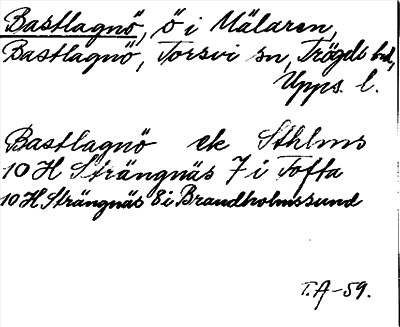 Bastlagnö, ö i Mälaren,
Bastlagnö, Torsvi sn, Trögds hd,
Upps. l.
Bastlagnö ek Sthlms
10 H Strängnäs 7 i Toffa
10 H Strängnäs 8 i Brandholmssund
T.A-59.